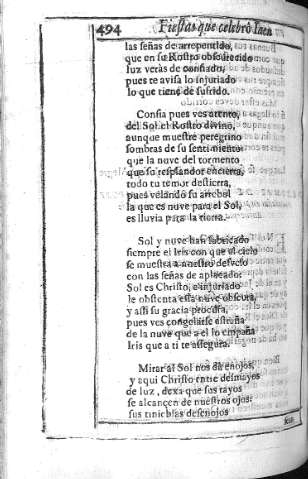 494 Fiestas que celebrô Iaen
las señas de arrepentido,
que en su Rostro obscurecido
luz veràs de confiado,
pues te avisa lo injuriado
lo que tiene de sufrido.
Confia pues ves atento,
del Sol el Rostro divino,
aunque muestre peregrino
sombras de su sentimiento
que la nuve del tormento
que su resplandor encierra,
todo tu temor destierra,
pues velando su arrebol
la que es nuve para el Sol,
es lluvia para la tierra.
Sol y nuve han fabricado
siempre el Iris con que el cielo
se muestra a nuestro desvelo
con las señas de aplacado:
Sol es Christo, e injuriado
le obstenta essa nuve obscura,
y assi su gracia procura,
pues ves
de la nuve que a el lo empaña
Iris que a ti te assegura.
Mirar al Sol nos dà enojos,
y aqui Christo entre desmayos
de luz, dexa que sus rayos
se alcançen de nuestros ojos:
sus tinieblas despojos